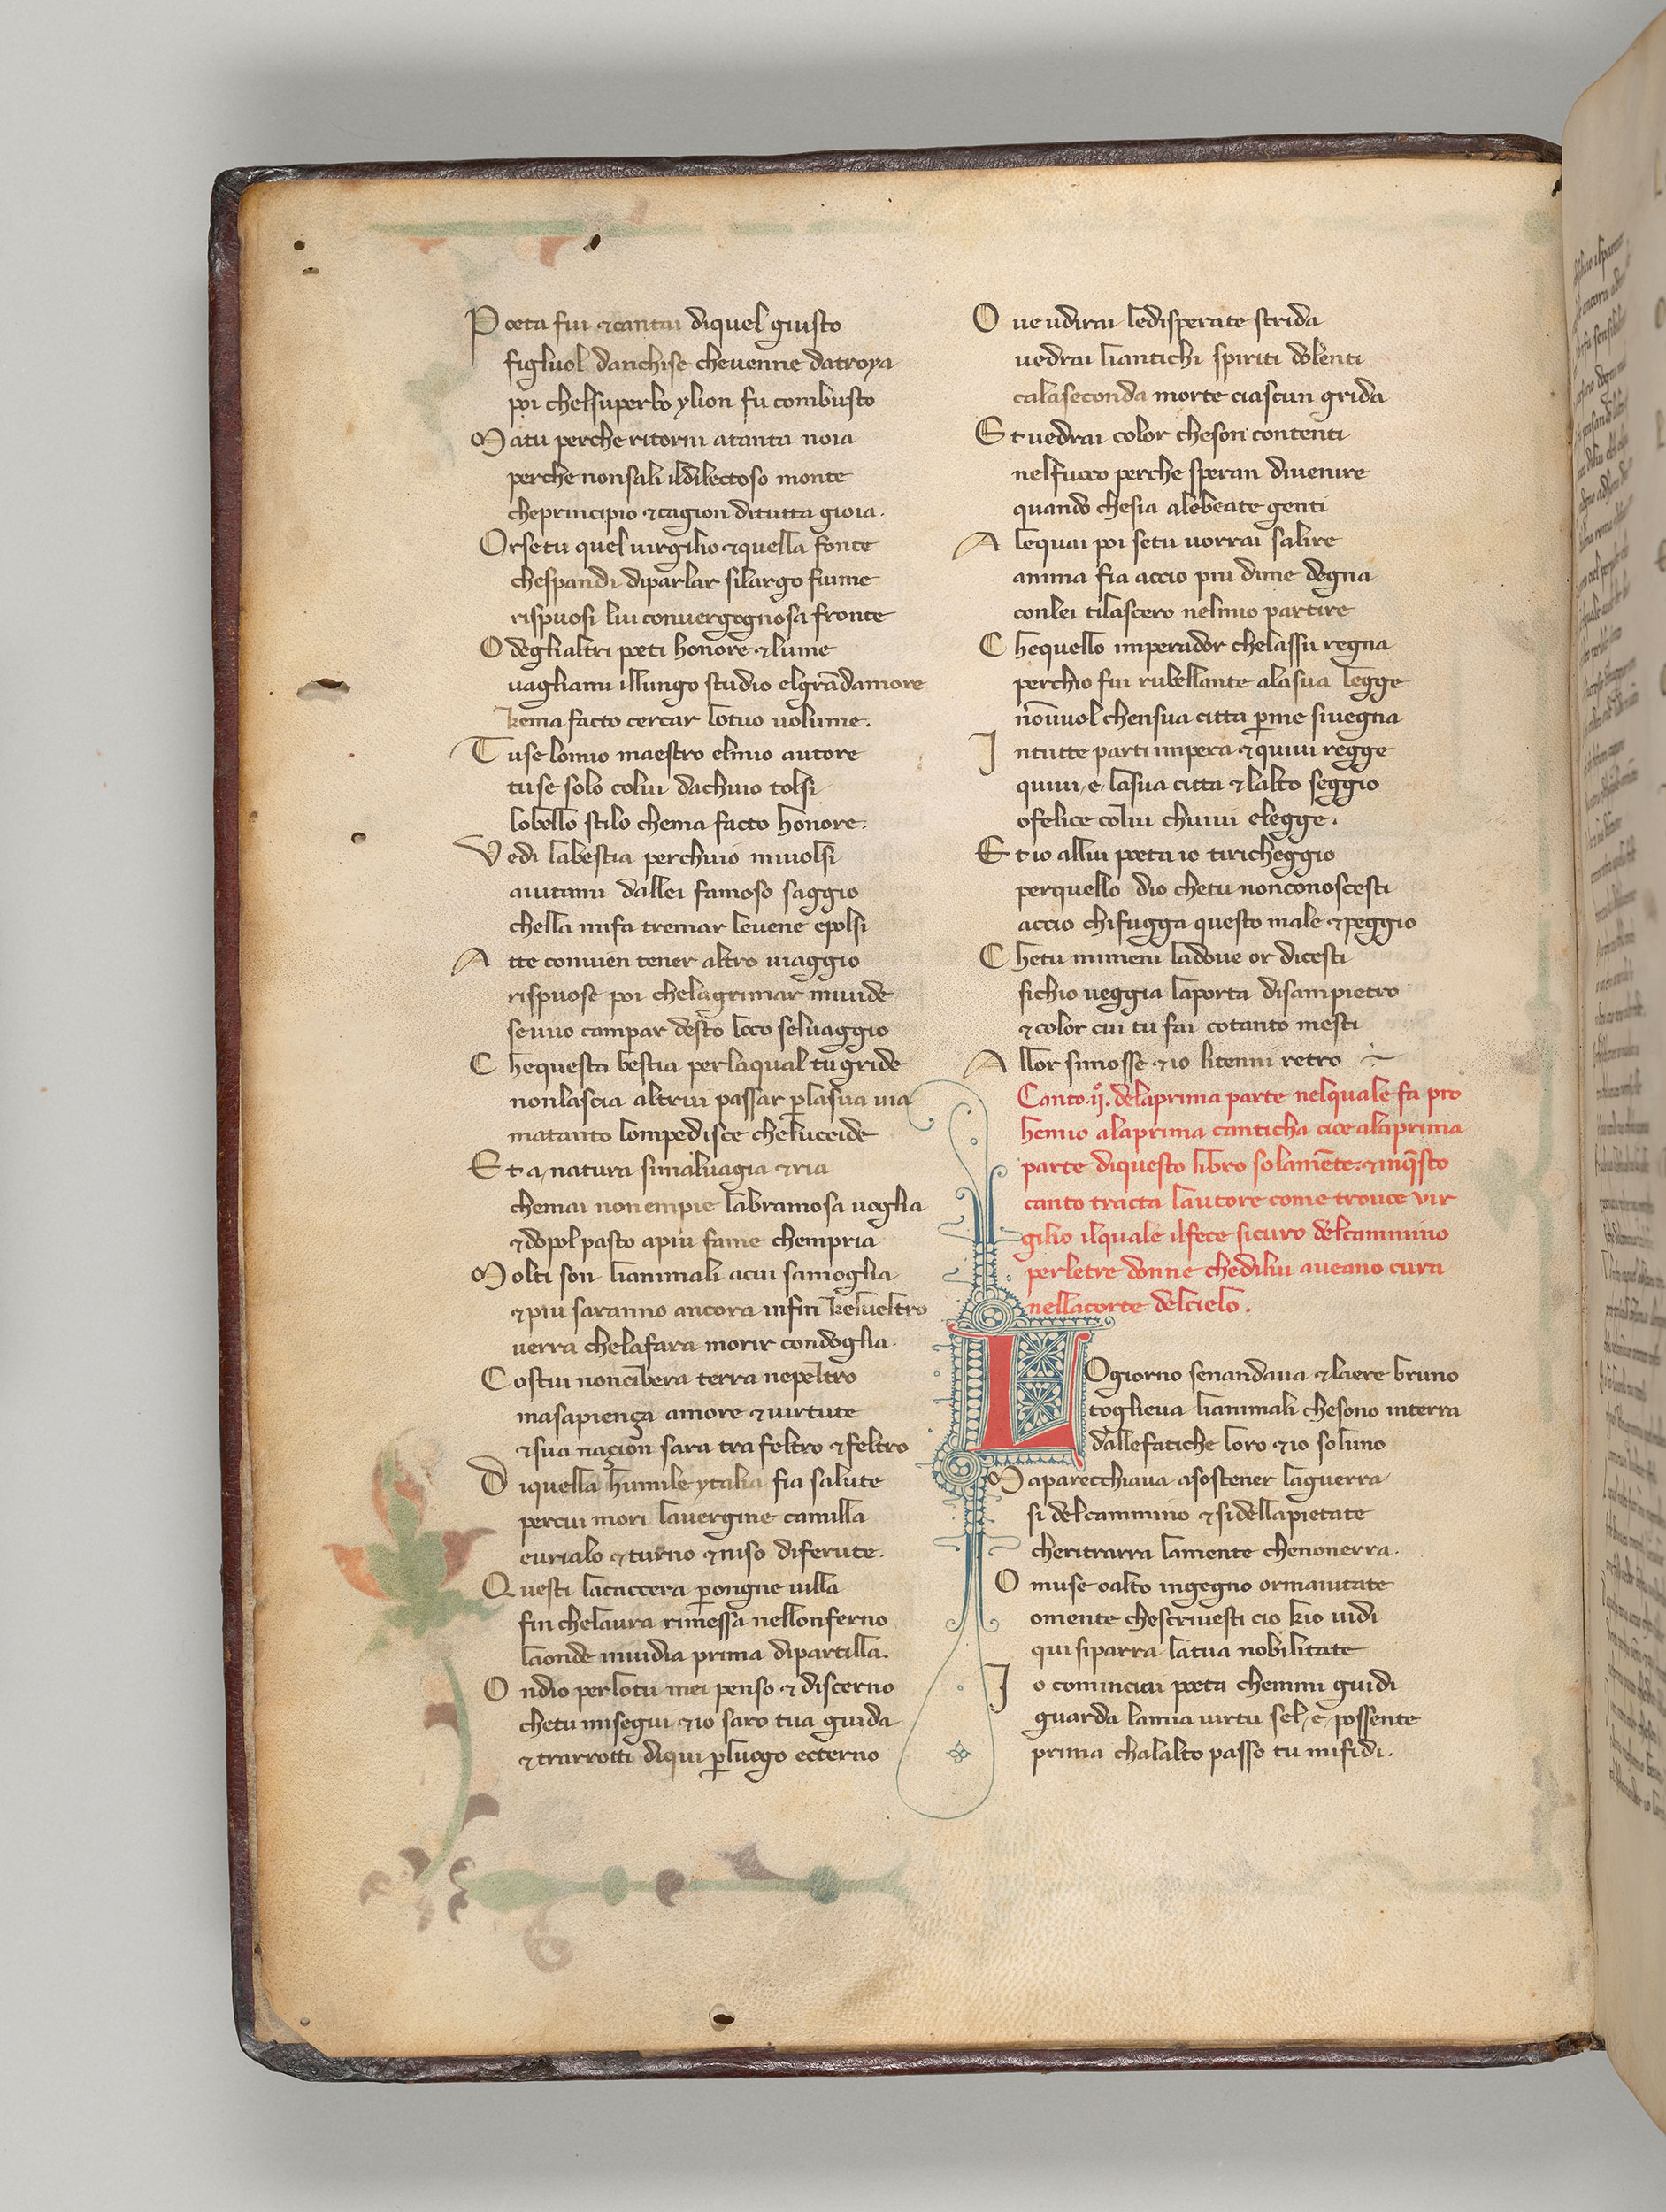 Poeta fui ⁊ cantai diquel giusto
figluol danchise cheuenne datroya
poi chelsuperbo ylion fu combusto
Matu perche ritorni atanta noia
perche nonsali ildilectoso monte
cheprincipio ⁊ cagion ditutta gioia.
Orsetu quel uirgilio ⁊ quella fonte
chespandi diparlar silargo fiume
rispuosi lui conuergognosa fronte
O deglialtri poeti honore ⁊ lume
uagliami illungo studio elgrādamore
kema facto cercar lotuo uolume.
Tuse lomio maestro elmio autore
tuse solo colui dachuio tolsi
lobello stilo chema facto honore.
Vedi labestia perchuio miuolsi
aiutami dallei famoso saggio
chella mifa tremar leuene epolsi
Atte conuien tener altro uiaggio
rispuose poi chelagrimar miuide
seuuo campar desto loco seluaggio
Chequesta bestia perlaqual tu gride
nonlascia altrui passar ꝑlasua uia
matanto lompedisce cheluccide
Et a natura simaluagia ⁊ ria
chemai nonempie labramosa uoglia
⁊ dopol pasto apiu fame chempria
Molti son lianimali acui samoglia
⁊ piu saranno ancora infin kelueltro
uerra chelafara morir condoglia.
Costui noncibera terra nepeltro
masapiença amore ⁊ uirtute
⁊ sua nagion sara tra feltro ⁊ feltro
Diquella humile ytalia fia salute
percui mori lauergine camilla
eurialo ⁊ turno ⁊ niso diferute.
Questi lacaccera ꝑongne uilla
fin chelaura rimessa nellonferno
laonde inuidia prima dipartilla.
Ondio perlotu mei penso ⁊ discerno
chetu misegui ⁊ io saro tua guida
⁊ trarrotti diqui ꝑluogo ecterno
Oue udirai ledisperate strida
uedrai liantichi spiriti dolenti
calaseconda morte ciascun grida
Et uedrai color cheson contenti
nelfuoco perche speran diuenire
quando chesia alebeate genti
Alequai poi setu uorrai salire
anima fia accio piu dime degna
conlei tilascero nelmio partire
Chequello imperador chelassu regna
perchio fui rubellante alasua legge
nōuuol chensua citta ꝑme siuegna
Intutte parti impera ⁊ quiui regge
quiui e lasua citta ⁊ lalto seggio
ofelice colui chuiui elegge.
Et io allui poeta io tiricheggio
perquello dio chetu nonconoscesti
accio chifugga questo male ⁊ peggio
Chetu mimeni ladoue or dicesti
sichio ueggia laporta disampietro
⁊ color cui tu fai cotanto mesti
Allor simosse ⁊ io litenni retro
Canto .ij. delaprima parte nelquale fa pro
hemio alaprima canticha cioe alaprima
parte diquesto libro solamēte. ⁊ inq̄sto
canto tracta lautore come trouoe vir
gilio ilquale ilfece sicuro delcammino
perletre donne chedilui aueano cura
nellacorte delcielo.
LOgiorno senandaua ⁊ laere bruno
toglieua lianimali chesono interra
dallefatiche loro ⁊ io soluno
Maparecchiaua asostener laguerra
si delcammino ⁊ sidellapietate
cheritrarra lamente chenonerra.
O muse oalto ingegno ormaiutate
omente chescriuesti cio kio uidi
qui siparra latua nobilitate
Io cominciai poeta chemmi guidi
guarda lamia uirtu sel e possente
prima chalalto passo tu mifidi.